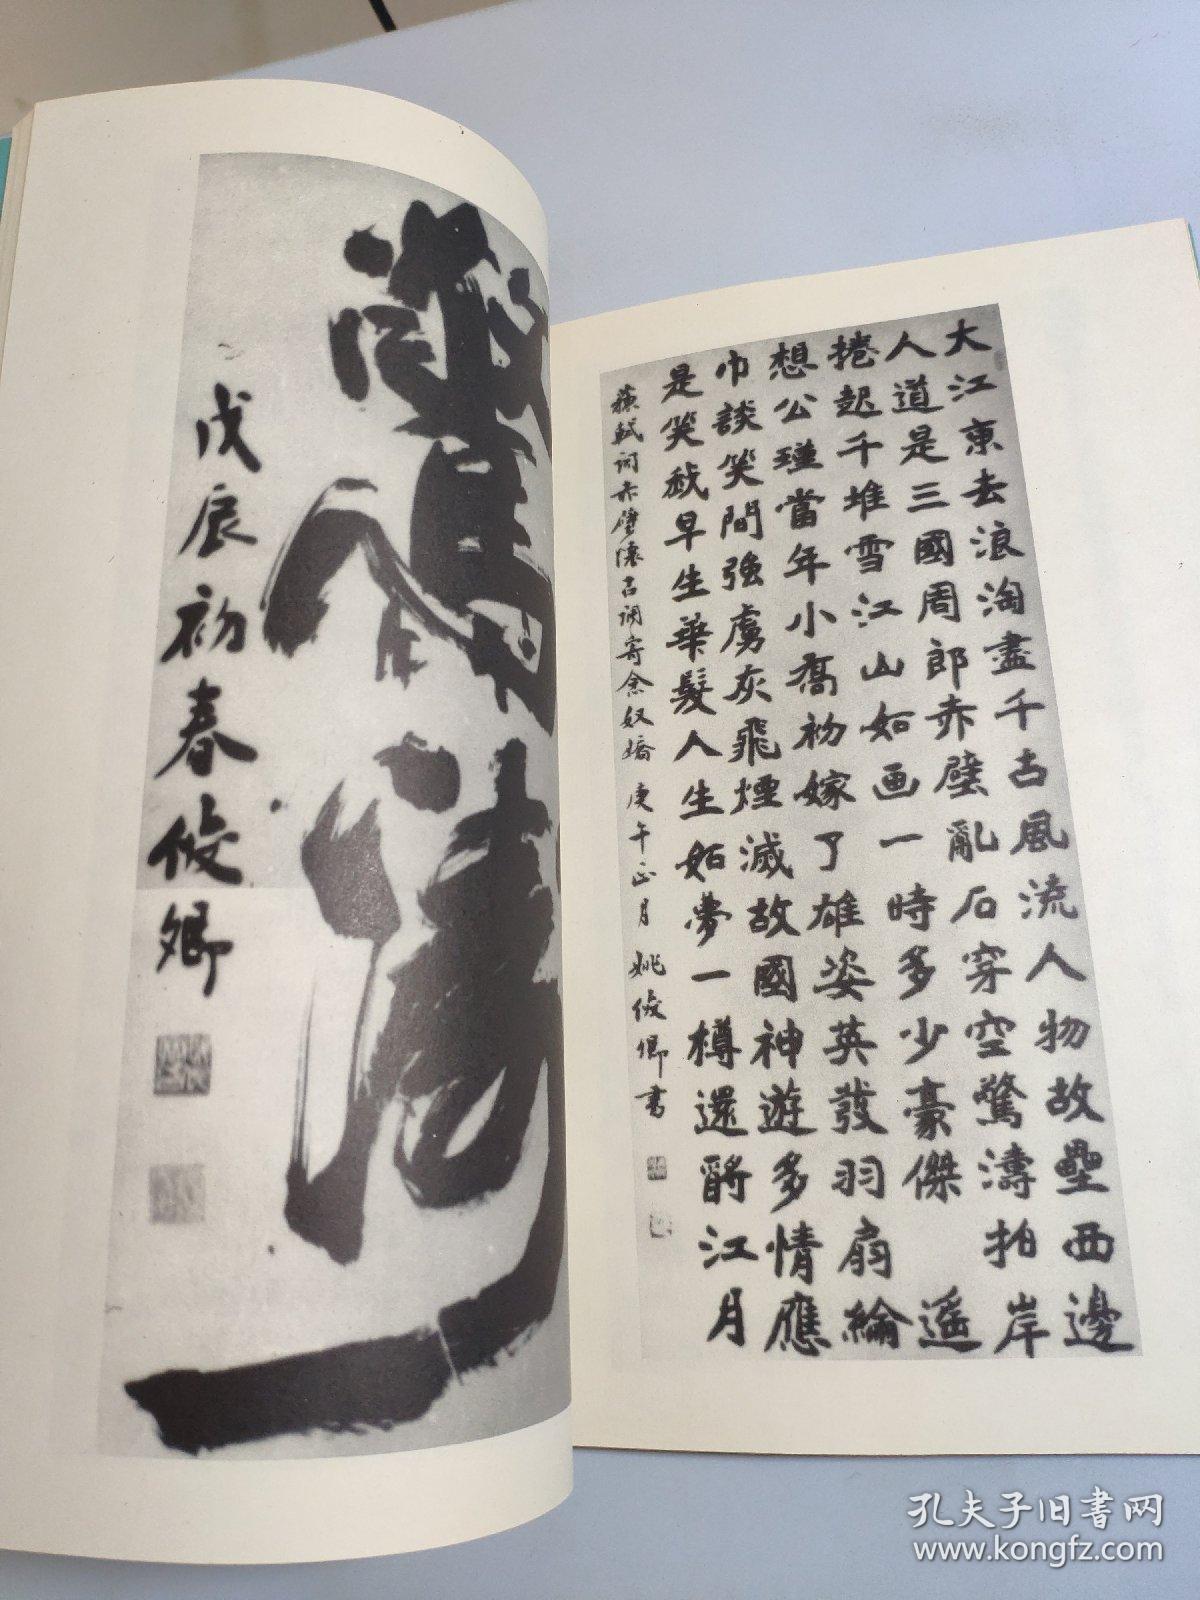 大江東去浪淘盡千古風流人物故壘西邊
人道是三國周郎赤壁亂石穿空驚濤拍岸
捲起千堆雪江山如画一時多少豪傑 遥
想公瑾當年小喬初嫁了雄姿英發羽扇綸
巾談笑間強虜灰飛煙滅故國神遊多情應
是笑我早生華髮人生如夢一樽還酹江月
蘇軾詞赤壁懷古調寄念奴嬌 庚午正月 姚俊卿書
戊辰初春俊卿
孔夫子旧书网
www.kongfz.com